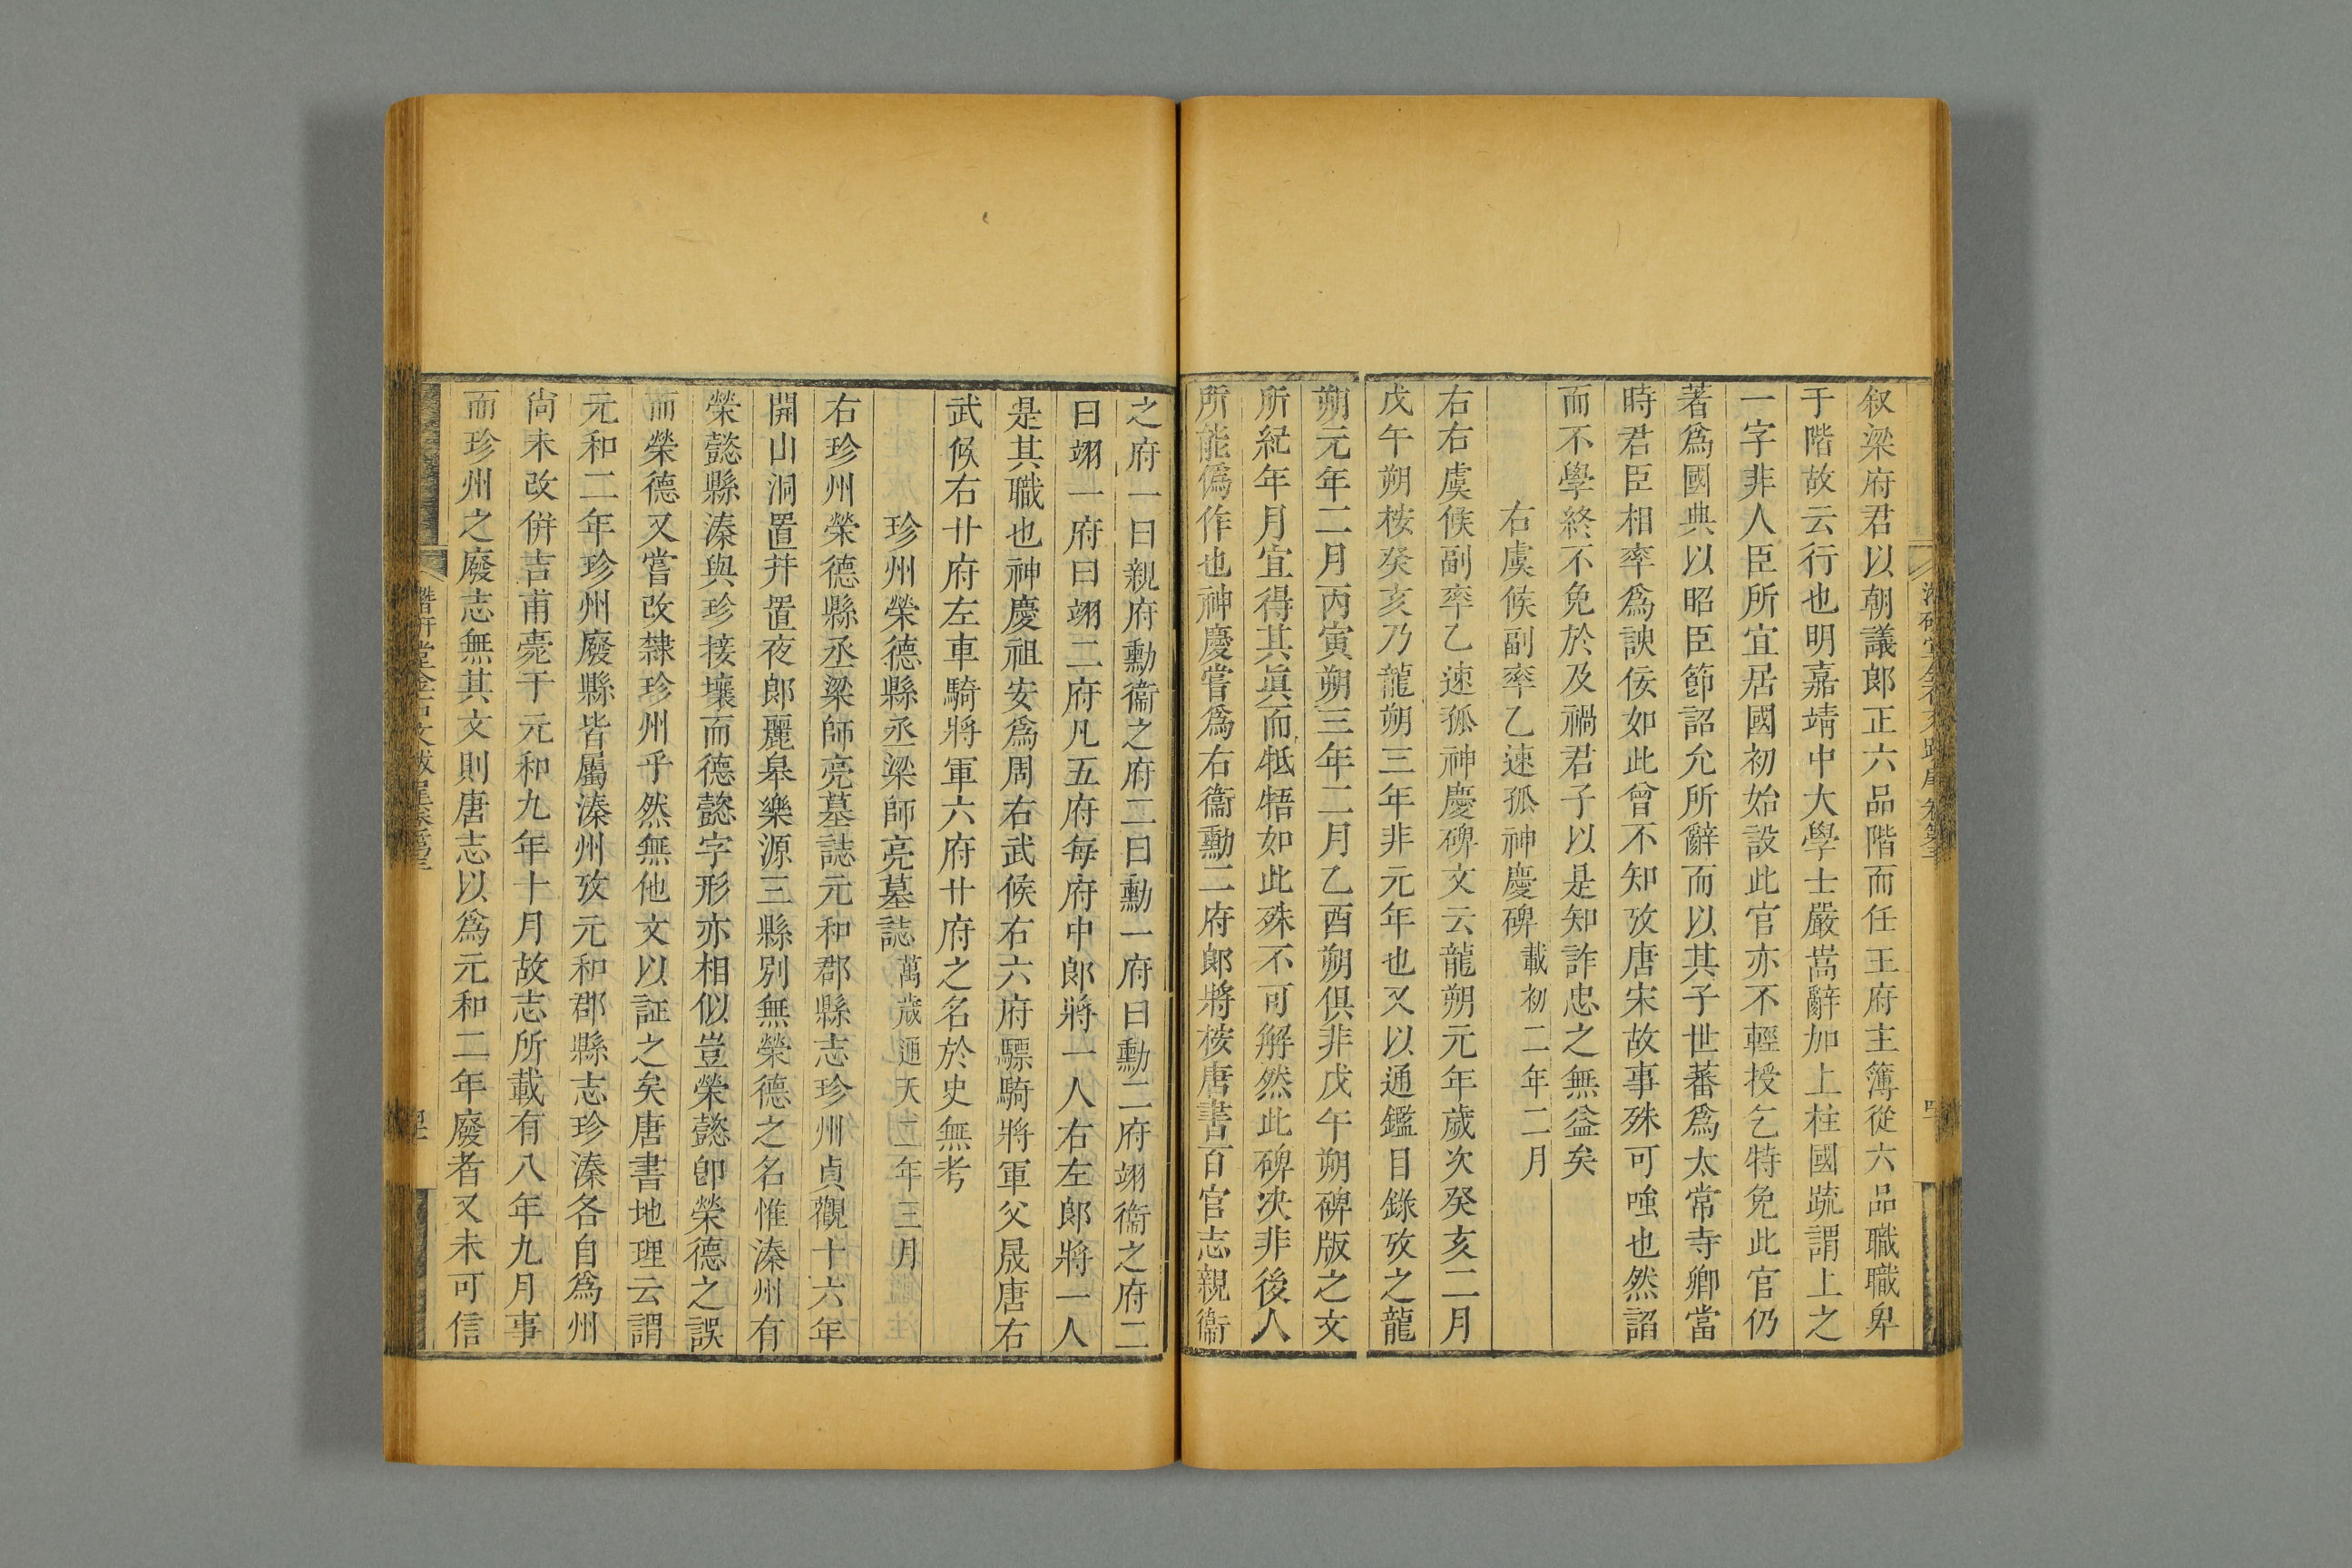 叙梁府君以朝議郎正六品階而任王府主簿從六品職職卑
于階故云行也明嘉靖中大學士嚴嵩辭加上柱國疏謂上之
一字非人臣所宜居國初始設此官亦不輕授乞特免此官仍
著爲國典以昭臣節詔允所辭而以其子世蕃爲太常寺卿當
時君臣相率爲諛佞如此曾不知攷唐宋故事殊可嗤也然諂
而不學終不免於及禍君子以是知詐忠之無益矣
右虞候副率乙速孤神慶碑 載初二年二月
右右虞候副率乙速孤神慶碑文云龍朔元年歲次癸亥二月
戊午朔桉癸亥乃龍朔三年非元年也又以通鑑目錄攷之龍
朔元年二月丙寅朔三年二月乙酉朔俱非戊午朔碑版之文
所紀年月宜得其眞而牴牾如此殊不可解然此碑決非後人
所能僞作也神慶嘗爲右衞勳二府郎將桉唐書百官志親衞
之府一曰親府勳衞之府二曰勳一府曰勳二府翊衞之府二
曰翊一府曰翊二府凡五府每府中郎將一人右左郎將一人
是其職也神慶祖安爲周右武候右六府驃騎將軍父晟唐右
武候右廿府左車騎將軍六府廿府之名於史無考
珍州榮德縣丞梁師亮墓誌 萬歲通天二年三月
右珍州榮德縣丞梁師亮墓誌元和郡縣志珍州貞觀十六年
開山洞置幷置夜郎麗皋樂源三縣別無榮德之名惟溱州有
榮懿縣溱與珍接壤而德懿字形亦相似豈榮懿卽榮德之誤
而榮德又嘗改隸珍州乎然無他文以証之矣唐書地理云謂
元和二年珍州廢縣皆屬溱州攷元和郡縣志珍溱各自爲州
尙未改併吉甫薨于元和九年十月故志所載有八年九月事
而珍州之廢志無其文則唐志以爲元和二年廢者又未可信